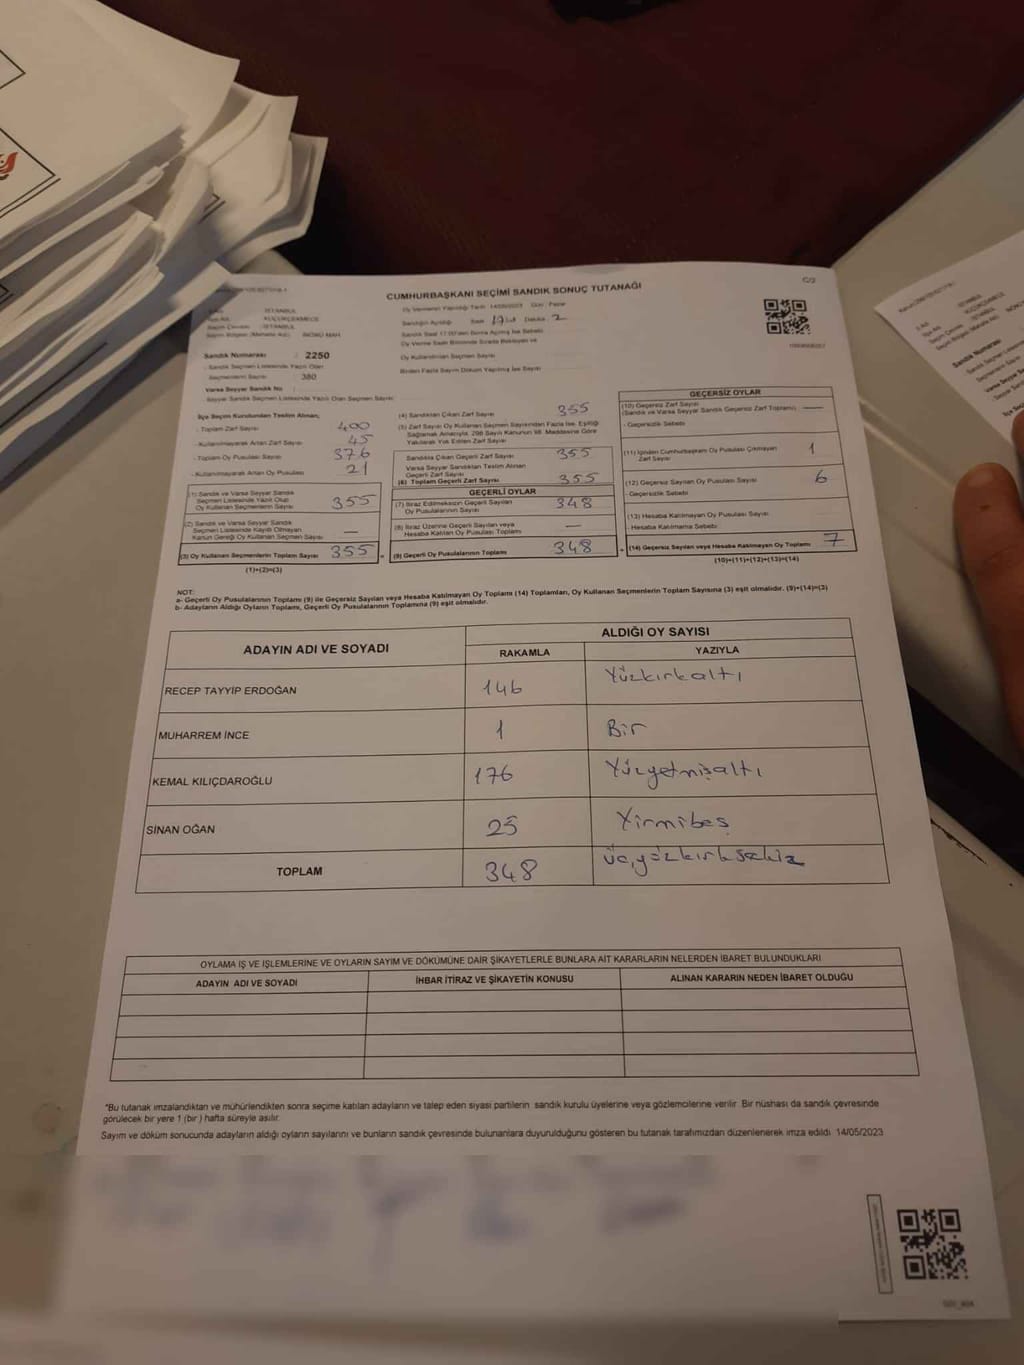 CUMHURBAŞKANI SEÇİMİ SANDIK SONUÇ TUTANAĞI
C/2
Oy Vermenin Yapıldığı Tarih 14/05/2023 Gün Pazar
İSTANBUL
KÜÇÜKÇEKMECE
İSTANBUL
İNÖNÜ MAH.
Sandık Numarası : 2250
- Sandık Seçmen Listesinde Yazılı Olan
Seçmenlerin Sayısı 380
Varsa Seyyar Sandık No
- Seyyar Sandık Seçmen Listesinde Yazılı Olan Seçmen Sayısı
Oy Kullandırılan Seçmen Sayısı
Birden Fazla Sayım Döküm Yapılmış İse Sayısı
İlçe Seçim Kurulundan Teslim Alınan;
- Toplam Zarf Sayısı 400
- Kullanılmayarak Artan Zarf Sayısı 45
- Toplam Oy Pusulası Sayısı 376
- Kullanılmayarak Artan Oy Pusulası 21
(1) Sandık ve Varsa Seyyar Sandık
Seçmen Listesinde Yazılı Olup
Oy Kullanan Seçmenlerin Sayısı 355
(2) Sandık ve Varsa Seyyar Sandık
Seçmen Listesinde Kayıtlı Olmayan
Kanun Gereği Oy Kullanan Seçmen Sayısı —
(3) Oy Kullanan Seçmenlerin Toplam Sayısı 355
(1)+(2)=(3)
(4) Sandıktan Çıkan Zarf Sayısı 355
(5) Zarf Sayısı Oy Kullanan Seçmen Sayısından Fazla İse, Eşitliği
Sağlamak Amacıyla, 298 Sayılı Kanunun 98. Maddesine Göre
Yakılarak Yok Edilen Zarf Sayısı
Sandıkta Çıkan Geçerli Zarf Sayısı 355
Varsa Seyyar Sandıktan Teslim Alınan
Geçerli Zarf Sayısı
(6) Toplam Geçerli Zarf Sayısı 355
GEÇERLİ OYLAR
(7) İtiraz Edilmeksizin Geçerli Sayılan
Oy Pusulalarının Sayısı 348
(8) İtiraz Üzerine Geçerli Sayılan veya
Hesaba Katılan Oy Pusulası Toplamı —
(9) Geçerli Oy Pusulalarının Toplamı 348
GEÇERSİZ OYLAR
(10) Geçersiz Zarf Sayısı
(Sandık ve Varsa Seyyar Sandık Geçersiz Zarf Toplamı) —
- Geçersizlik Sebebi
(11) İçinden Cumhurbaşkanı Oy Pusulası Çıkmayan
Zarf Sayısı 1
(12) Geçersiz Sayılan Oy Pusulası Sayısı 6
- Geçersizlik Sebebi
(13) Hesaba Katılmayan Oy Pusulası Sayısı
- Hesaba Katılmama Sebebi
(14) Geçersiz Sayılan veya Hesaba Katılmayan Oy Toplamı 7
(10)+(11)+(12)+(13)=(14)
NOT:
a- Geçerli Oy Pusulalarının Toplamı (9) ile Geçersiz Sayılan veya Hesaba Katılmayan Oy Toplamı (14) Toplamları, Oy Kullanan Seçmenlerin Toplam Sayısına (3) eşit olmalıdır. (9)+(14)=(3)
b- Adayların Aldığı Oyların Toplamı, Geçerli Oy Pusulalarının Toplamına (9) eşit olmalıdır.
ADAYIN ADI VE SOYADI
ALDIĞI OY SAYISI
RAKAMLA YAZIYLA
RECEP TAYYİP ERDOĞAN 146 Yüzkırkaltı
MUHARREM İNCE 1 Bir
KEMAL KILIÇDAROĞLU 176 Yüzyetmişaltı
SİNAN OĞAN 25 Yirmibeş
TOPLAM 348 Üçyüzkırksekiz
OYLAMA İŞ VE İŞLEMLERİNE VE OYLARIN SAYIM VE DÖKÜMÜNE DAİR ŞİKAYETLERLE BUNLARA AİT KARARLARIN NELERDEN İBARET BULUNDUKLARI
ADAYIN ADI VE SOYADI İHBAR İTİRAZ VE ŞİKAYETİN KONUSU ALINAN KARARIN NEDEN İBARET OLDUĞU
*Bu tutanak imzalandıktan ve mühürlendikten sonra seçime katılan adayların ve talep eden siyasi partilerin sandık kurulu üyelerine veya gözlemcilerine verilir. Bir nüshası da sandık çevresinde
görülecek bir yere 1 (bir) hafta süreyle asılır.
Sayım ve döküm sonucunda adayların aldığı oyların sayılarını ve bunların sandık çevresinde bulunanlara duyurulduğunu gösteren bu tutanak tarafımızdan düzenlenerek imza edildi 14/05/2023